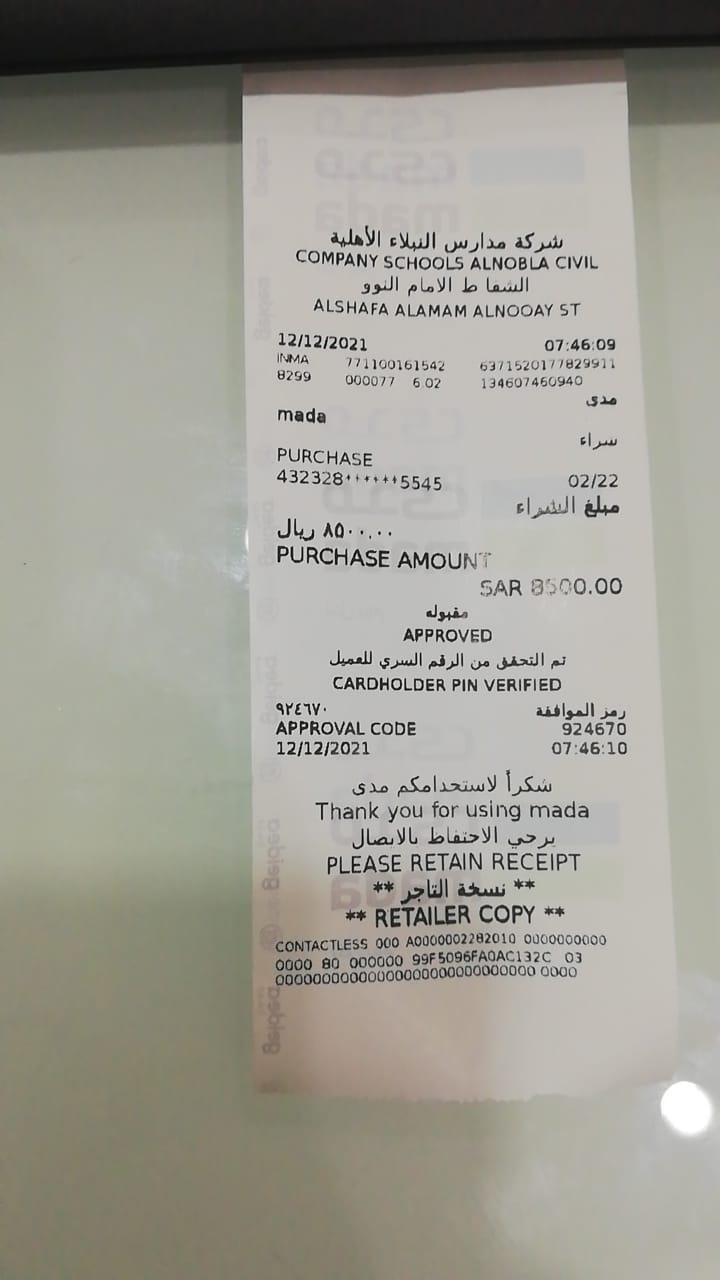 شركة مدارس النبلاء الأهلية
COMPANY SCHOOLS ALNOBLA CIVIL
الشفا ط الامام النوو
ALSHAFA ALAMAM ALNOOAY ST
12/12/2021 07:46:09
INMA 771100161542 6371520177829911
8299 000077 6.02 134607460940
مدى
mada
شراء
PURCHASE
432328******5545 02/22
مبلغ الشراء
٨٥٠٠.٠٠ ريال
PURCHASE AMOUNT
SAR 8500.00
مقبوله
APPROVED
تم التحقق من الرقم السري للعميل
CARDHOLDER PIN VERIFIED
رمز الموافقة ٩٢٤٦٧٠
APPROVAL CODE 924670
12/12/2021 07:46:10
شكراً لاستخدامكم مدى
Thank you for using mada
يرجي الاحتفاظ بالايصال
PLEASE RETAIN RECEIPT
** نسخة التاجر **
** RETAILER COPY **
CONTACTLESS 000 A0000002282010 0000000000
0000 80 000000 99F5096FA0AC132C 03